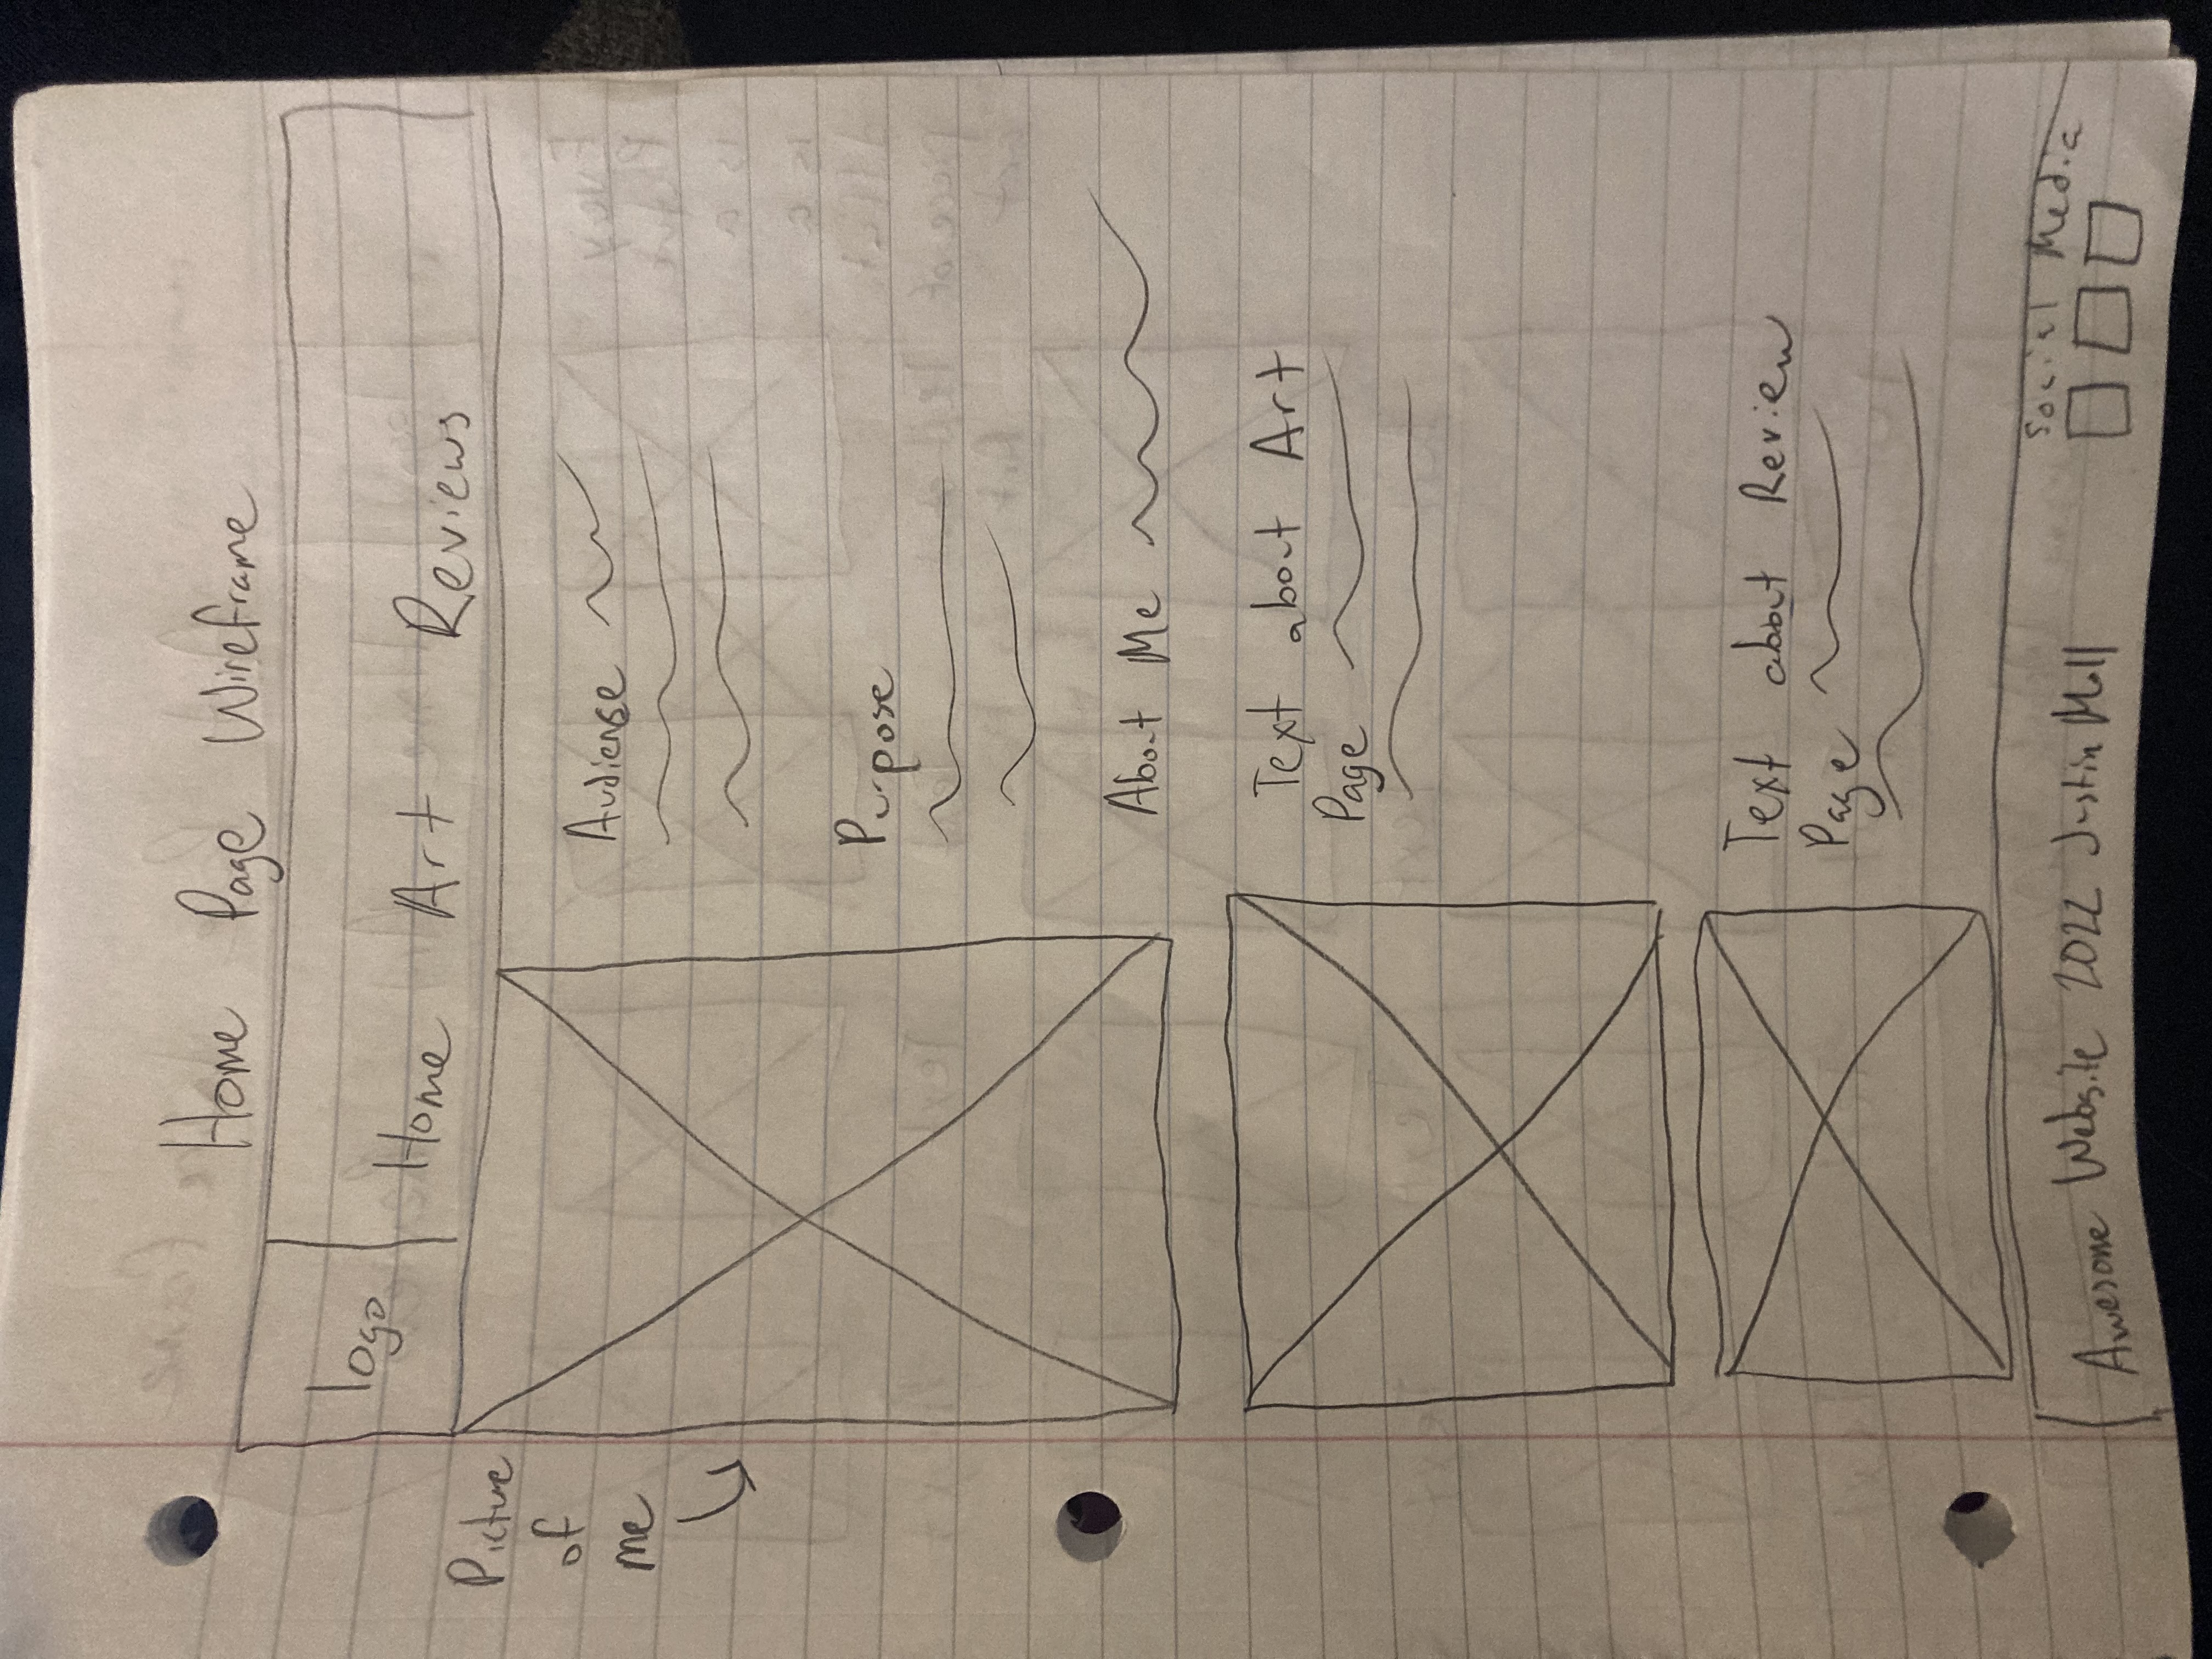 Home Page Wireframe
logo
Home Art Reviews
Picture
of
me
Audiense
Purpose
About Me
Text about Art
Page
Text about Review
Page
Social Media
Awesome Website 2022 Justin Moll